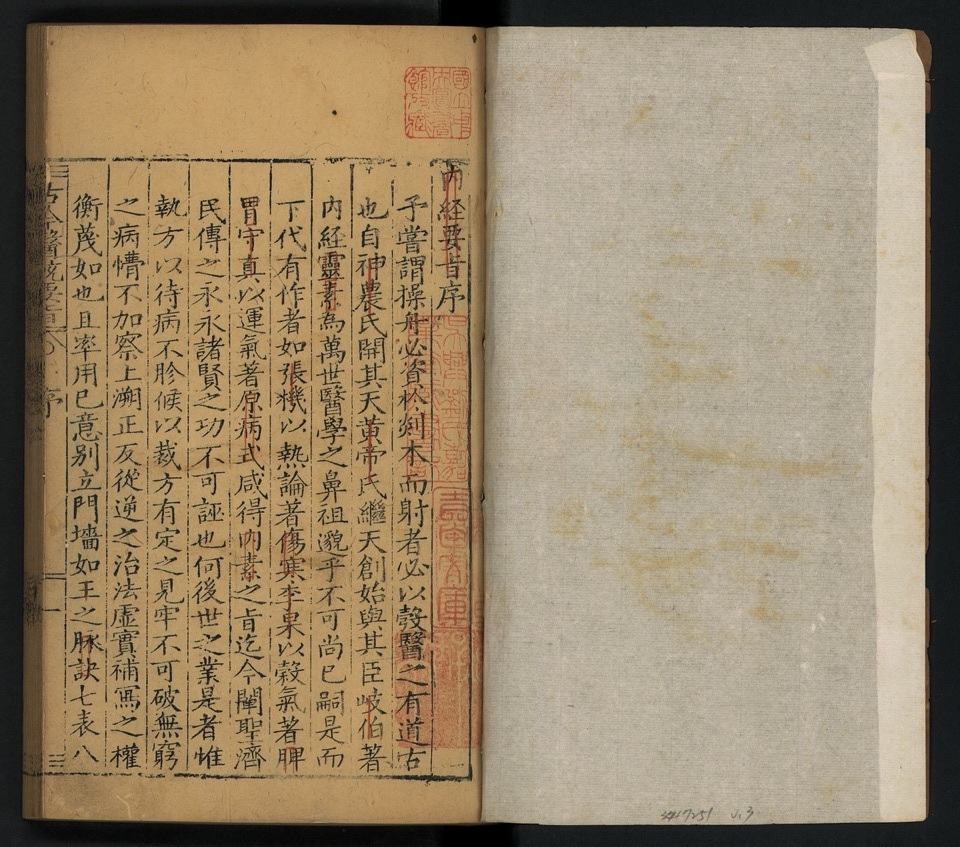 內経要旨序
予嘗謂操舟必資於剡木而射者必以彀醫之有道古
也自神農氏開其天黄帝氏繼天創始與其臣岐伯著
内経靈素為萬世醫學之鼻祖邈乎不可尚已嗣是而
下代有作者如張機以熱論著傷寒李杲以穀氣著脾
胃守真以運氣著原病式咸得内素之旨迄今闡聖濟
民傳之永永諸賢之功不可誣也何後世之業是者惟
執方以待病不胗候以裁方有定之見牢不可破無窮
之病懵不加察上溯正反從逆之治法虛實補寫之權
衡蔑如也且率用已意别立門墻如王之脉訣七表八
古今醫統要旨
序
一
國立中央圖書館收藏
3417251 v.3